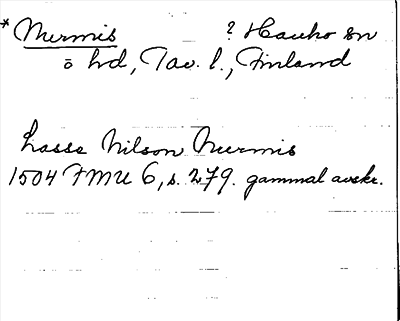 * Nurmis ? Hauho sn
ö hd, Tav. l., Finland
Lasse Nilson Nurmis
1504 FMU 6, s. 279. gammal avskr.